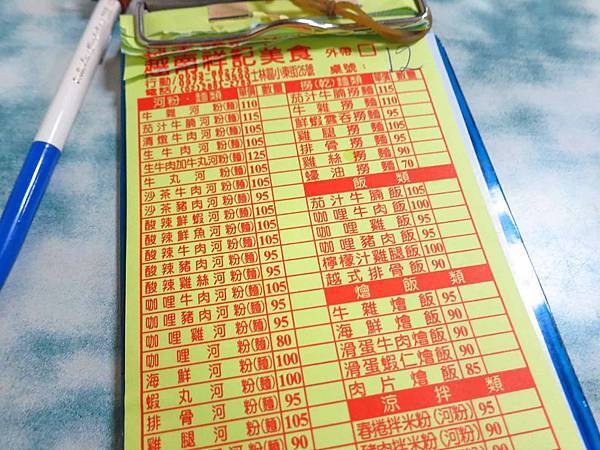 越南祥記美食 外帶 □
士林區小東街26號 桌號： 12
河粉．麵類 單價 數量
牛雜河粉(麵) 110
茄汁牛腩河粉(麵) 115
清燉牛肉河粉(麵) 105
生牛肉河粉(麵) 105
生牛肉加牛丸河粉(麵) 125
牛丸河粉(麵) 105
沙茶牛肉河粉(麵) 105
沙茶豬肉河粉(麵) 95
酸辣鮮蝦河粉(麵) 105
酸辣鮮魚河粉(麵) 105
酸辣牛肉河粉(麵) 105
酸辣豬肉河粉(麵) 95
酸辣雞絲河粉(麵) 95
咖哩牛肉河粉(麵) 105
咖哩豬肉河粉(麵) 95
咖哩雞河粉(麵) 95
咖哩河粉(麵) 80
海鮮河粉(麵) 100
蝦丸河粉(麵) 100
排骨河粉(麵) 95
雞腿河粉(麵) 105
90
撈(乾)麵類 單價 數量
茄汁牛腩撈麵 115
牛雜撈麵 110
鮮蝦雲吞撈麵 105
雞腿撈麵 105
排骨撈麵 95
雞絲撈麵 90
蠔油撈麵 70
飯類
茄汁牛腩飯 105
咖哩牛肉飯 100
咖哩雞飯 95
咖哩豬肉飯 95
檸檬汁雞腿飯 100
越式排骨飯 90
燴飯類
牛雜燴飯 95
海鮮燴飯 90
滑蛋牛肉燴飯 90
滑蛋蝦仁燴飯 90
肉片燴飯 85
涼拌類
春捲拌米粉(河粉) 95
豬肉拌米粉(河粉) 90